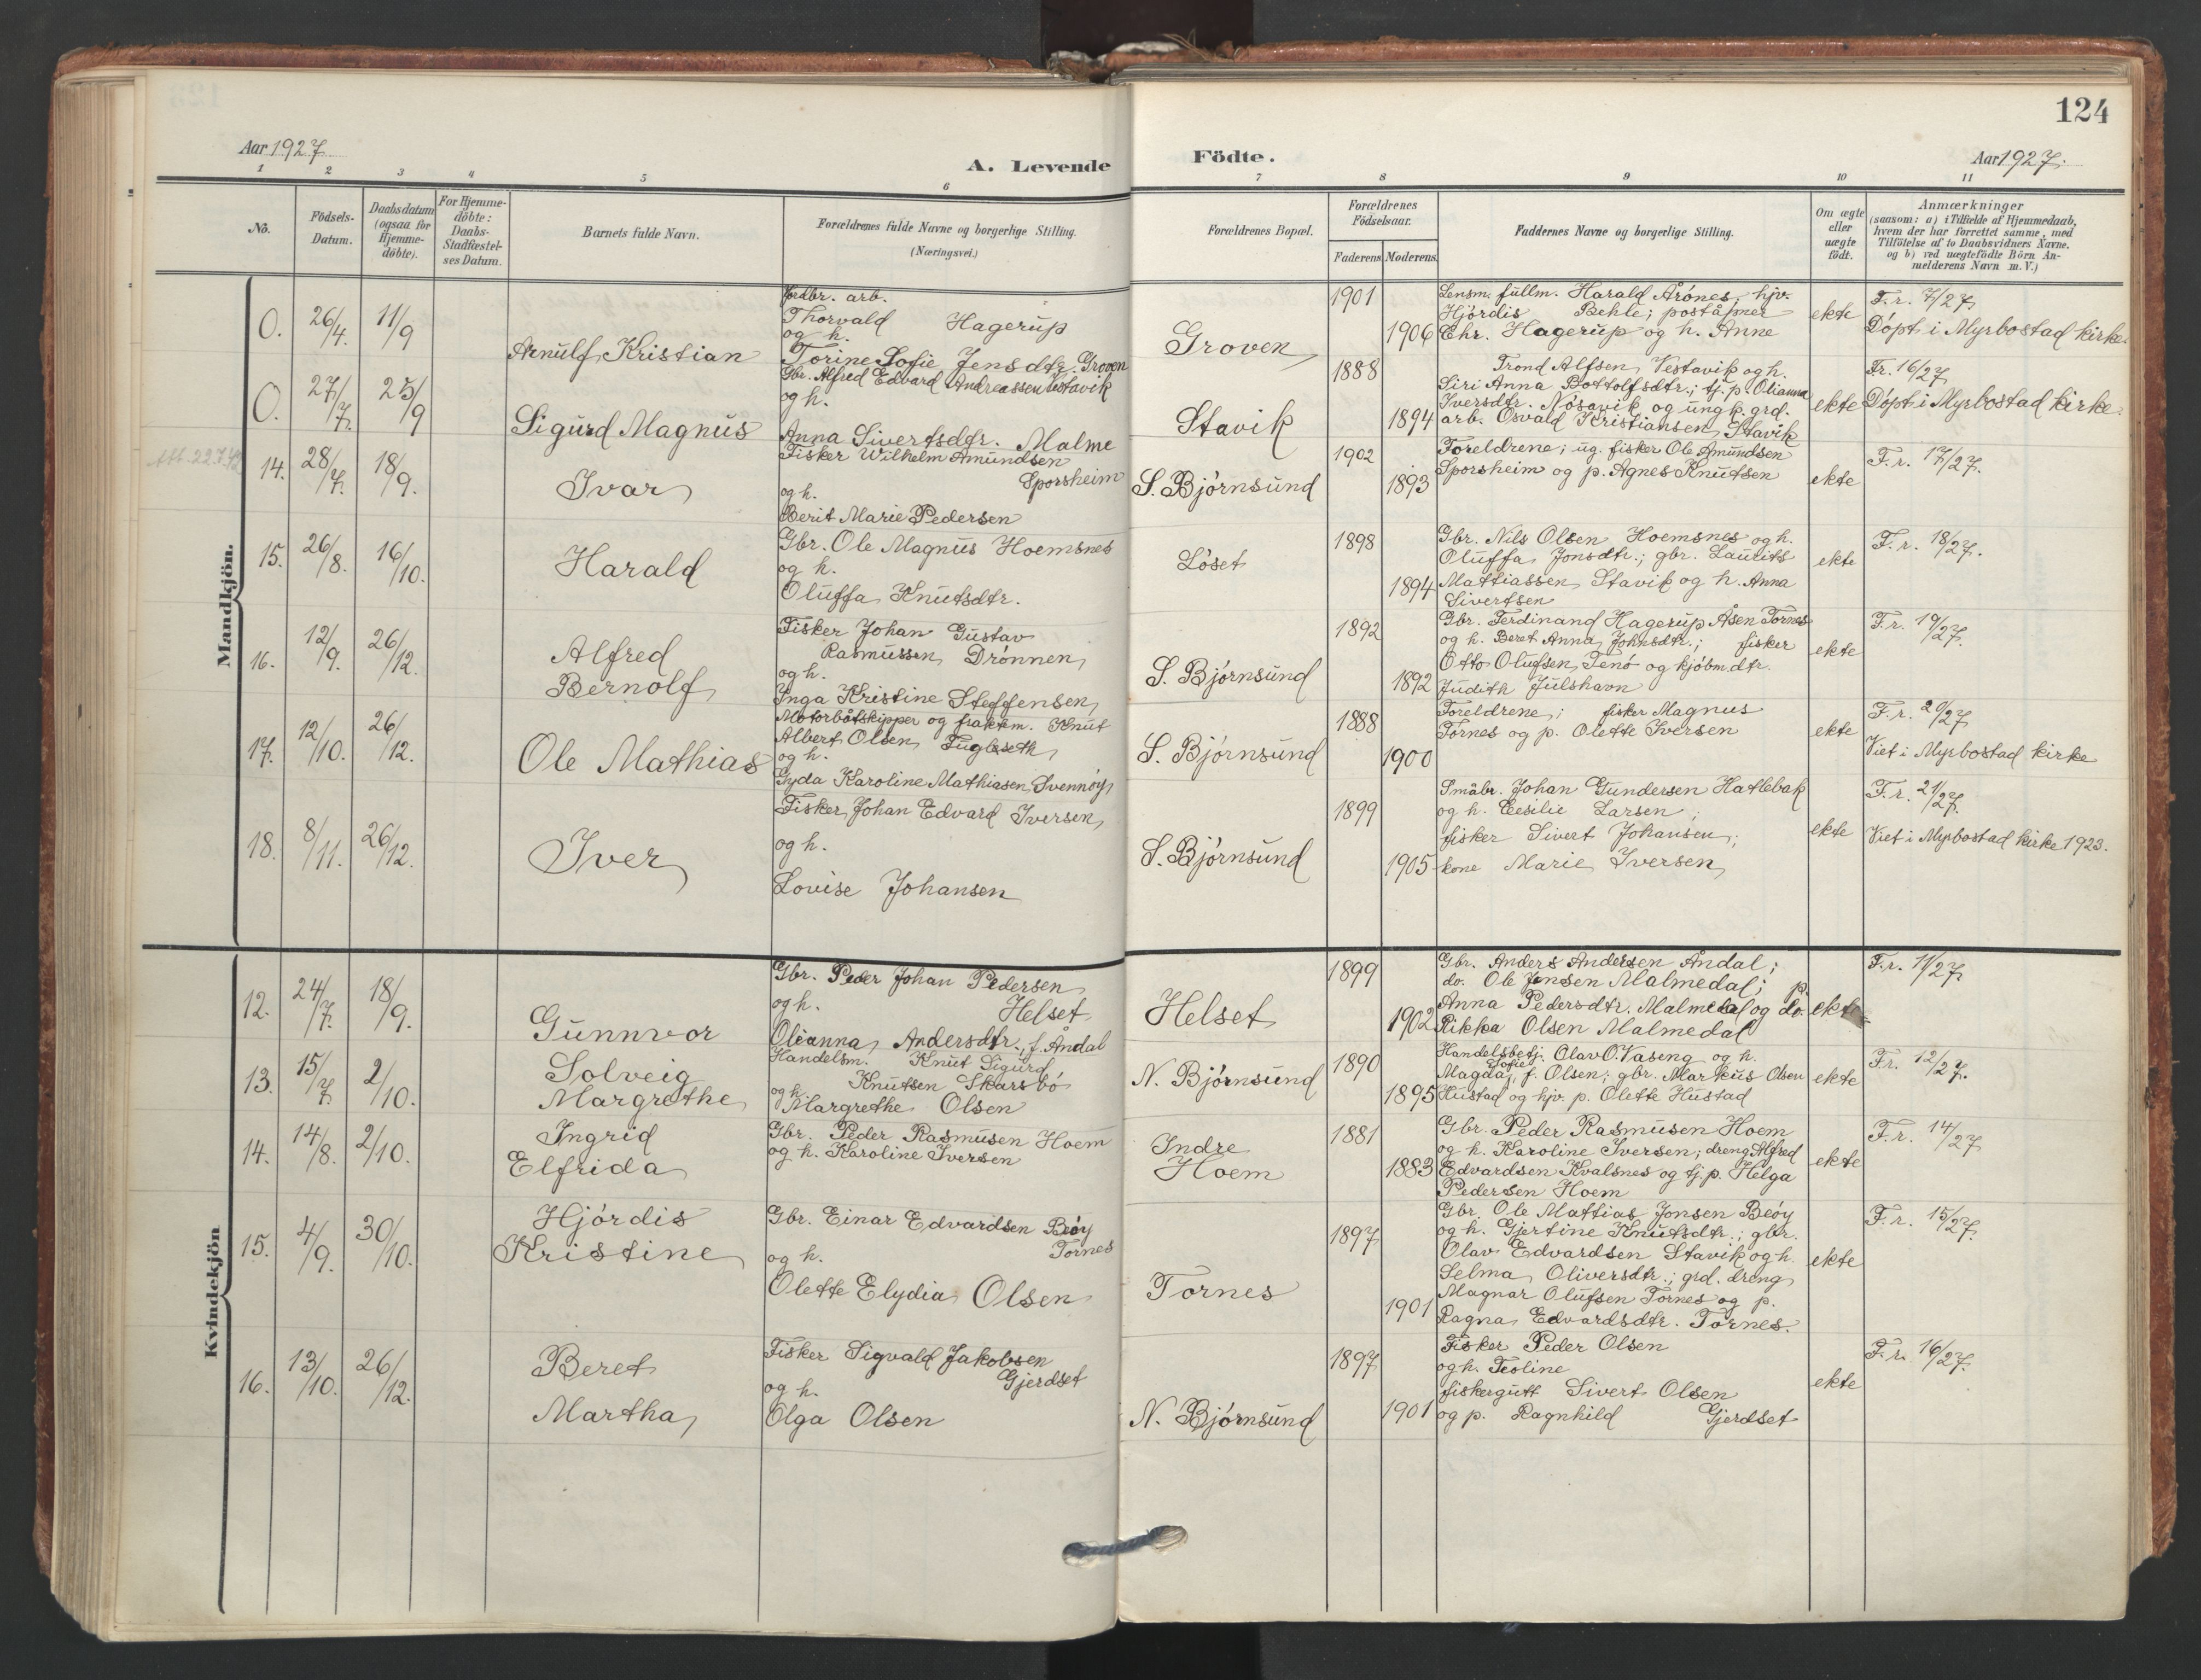 124
Aar 1927.
A. Levende Födte.
Aar 1927.
1 2 3 4 5 6 7 8 9 10 11
No.
Födsels-
Datum.
Daabsdatum
(ogsaa for
Hjemme-
döbte).
For Hjemme-
döbte:
Daabs-
Stadfæstel-
ses Datum.
Barnets fulde Navn.
Forældrenes fulde Navne og borgerlige Stilling.
(Næringsvei.)
Forældrenes Bopæl.
Forældrenes
Födselsaar.
Faderens. Moderens.
Faddernes Navne og borgerlige Stilling.
Om ægte
eller
uægte
födt.
Anmærkninger
(saasom: a) i Tilfælde af Hjemmedaab,
hvem der har forrettet samme, med
Tilföielse af to Daabsvidners Navne.
og b) ved uægtefödte Börn An-
melderens Navn m. V.)
Mandkjön.
0. 26/4. 11/9
Arnulf Kristian
Jordbr. arb.
Thorvald Hagerup
og h.
Torine Sofie Jensdtr. Groven
Groven
1901
1906
Lensm. fullm. Harald Årönes, hjv.
Hjördis Behle; poståpner
Chr. Hagerup og h. Anne
ekte
F. r. 7/27.
Döpt i Myrbostad kirke.
0. 27/7. 25/9
Sigurd Magnus
Gbr. Alfred Edvard Andreassen Vestavik
og h.
Anna Sivertsdtr. Malme
Stavik
1888
1894
Trond Alfsen Vestavik og h.
Siri Anna Bottolfsdtr.; tj. p. Olianna
Iversdtr. Nösavik og ungk. grd.
arb. Osvald Kristiansen Stavik
ekte
Fr. 16/27.
Döpt i Myrbostad kirke.
14. 28/7. 18/9.
Ivar
Fisker Wilhelm Amundsen
Sporsheim
og h.
Berit Marie Pedersen
S. Björnsund
1902
1893
Foreldrene; ug. fisker Ole Amundsen
Sporsheim og p. Agnes Knutsen
ekte
F. r. 17/27.
15. 26/8. 16/10.
Harald
Gbr. Ole Magnus Hoemsnes
og h.
Oluffa Knutsdtr.
Löset
1898
1894
Gbr. Nils Olsen Hoemsnes og h.
Oluffa Jonsdtr.; gbr. Laurits
Mattiassen Stavik og h. Anna
Sivertsen
ekte
F. r. 18/27.
16. 12/9. 26/12.
Alfred
Bernolf
Fisker Johan Gustav
Rasmussen Drönnen
og h.
Inga Kristine Steffensen
S. Björnsund
1892
1892
Gbr. Ferdinand Hagerup Åsen Tornes
og h. Beret Anna Johnsdtr.; fisker
Otto Olufsen Tenö og kjöbm.dtr.
Judith Julshavn
ekte
F. r. 19/27.
17. 12/10. 26/12.
Ole Mathias
Motorbåtskipper og fraktem. Knut
Albert Olsen Fugleseth
og h.
Gyda Karoline Mathiasen Svennöy
S. Björnsund
1888
1900
Foreldrene; fisker Magnus
Tornes og p. Olette Iversen
ekte
F. r. 20/27
Viet i Myrbostad kirke
18. 8/11. 26/12.
Iver
Fisker Johan Edvard Iversen
og h.
Lovise Johansen
S. Björnsund
1899
1905
Småbr. Johan Gundersen Hatlebak
og h. Cecilie Larsen;
fisker Sivert Johansen;
kone Marie Iversen
ekte
F. r. 21/27.
Viet i Myrbostad kirke 1923.
Kvindekjön
12. 24/7. 18/9.
Gunnvor
Gbr. Peder Johan Pedersen
og h. Helset
Olianna Andersdtr., f. Åndal
Helset
1899
1902
Gbr. Anders Andersen Åndal;
do. Ole Jonsen Malmedal; p.
Anna Pedersdtr. Malmedal og do.
Rikka Olsen Malmedal
ekte
F. r. 11/27.
13. 15/7. 2/10.
Solveig
Margrethe
Handelsm. Knut Sigurd
Knutsen Skarsbö
og h.
Margrethe Olsen
N. Björnsund
1890
1895
Handelsbetj. Olav O. Vaseng og h.
Sofie
Magda, f. Olsen; gbr. Markus Olsen
Hustad og hjv. p. Olette Hustad
ekte
Fr. 12/27.
14. 14/8. 2/10.
Ingrid
Elfrida
Gbr. Peder Rasmusen Hoem
og h. Karoline Iversen
Indre
Hoem
1881
1883
Gbr. Peder Rasmusen Hoem
og h. Karoline Iversen; dreng Alfred
Edvardsen Kvalsnes og tj. p. Helga
Pedersen Hoem
ekte
F. r. 14/27
15. 4/9. 30/10.
Hjördis
Kristine
Gbr. Einar Edvardsen Beöy
Tornes
og h.
Olette Elydia Olsen
Tornes
1897
1901
Gbr. Ole Mattias Jonsen Beöy
og h. Gjertine Knutsdtr.; gbr.
Olav Edvardsen Stavik og h.
Selma Oliversdtr.; grd. dreng
Magnar Olufsen Tornes og p.
Ragna Edvardsdtr. Tornes.
ekte
F. r. 15/27.
16. 13/10. 26/12.
Beret
Martha
Fisker Sigvald Jakobsen
Gjerdset
og h.
Olga Olsen
N. Björnsund
1897
1901
Fisker Peder Olsen
og h. Teoline
fiskergutt Sivert Olsen
og p. Ragnhild Gjerdset
ekte
F. r. 16/27.